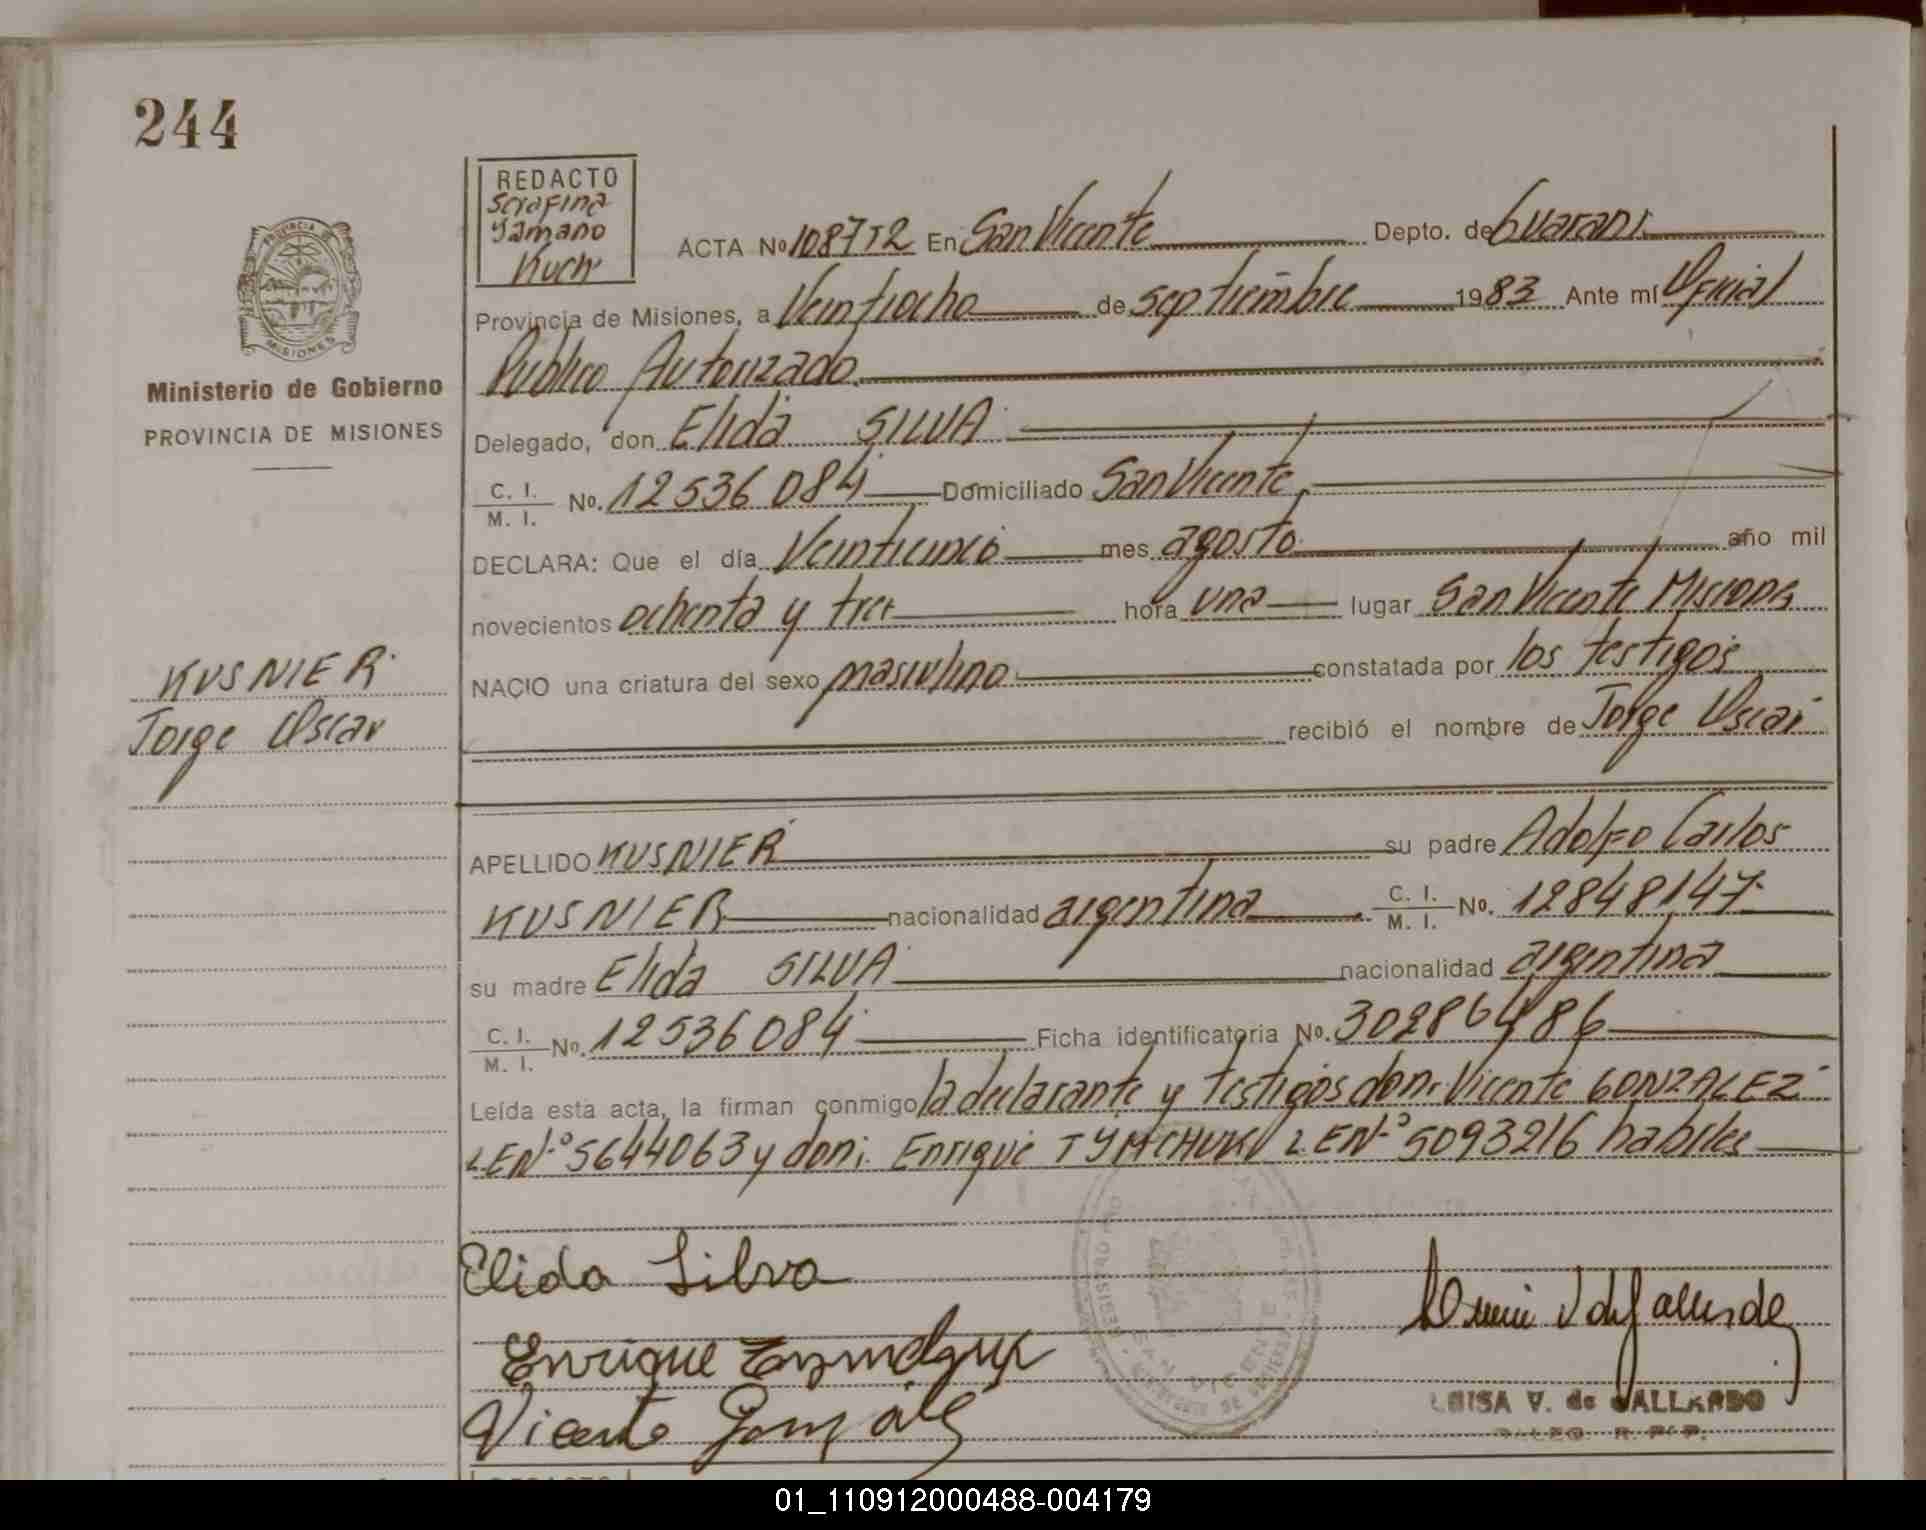 244
REDACTO
Serafina
Yamano
Kuch
ACTA No 1087T2 En San Vicente Depto. de Guarani
Provincia de Misiones, a Veintiocho de septiembre 1983 Ante mí Oficial
Publico Autorizado
PROVINCIA DE
MISIONES
Ministerio de Gobierno
PROVINCIA DE MISIONES
Delegado, don Elida SILVA
C. I.
M. I. No. 12536084 Domiciliado San Vicente
DECLARA: Que el día Veinticinco mes agosto año mil
novecientos ochenta y tres hora una lugar San Vicente Misiones
KUSNIER
Jorge Oscar
NACIO una criatura del sexo masculino constatada por los testigos
recibió el nombre de Jorge Oscar
APELLIDO KUSNIER su padre Adolfo Carlos
KUSNIER nacionalidad argentina C. I. M. I. No. 12848147
su madre Elida SILVA nacionalidad argentina
C. I.
M. I. No. 12536084 Ficha identificatoria No. 30286486
Leída esta acta, la firman conmigo la declarante y testigos don: Vicente GONZALEZ
LEN° 5644063 y don: Enrique TYMCHUK LEN° 5093216 habiles
Elida Silva
Enrique
Vicente Gonzalez
SAN VICENTE
LUISA V. de GALLARDO
01_110912000488-004179